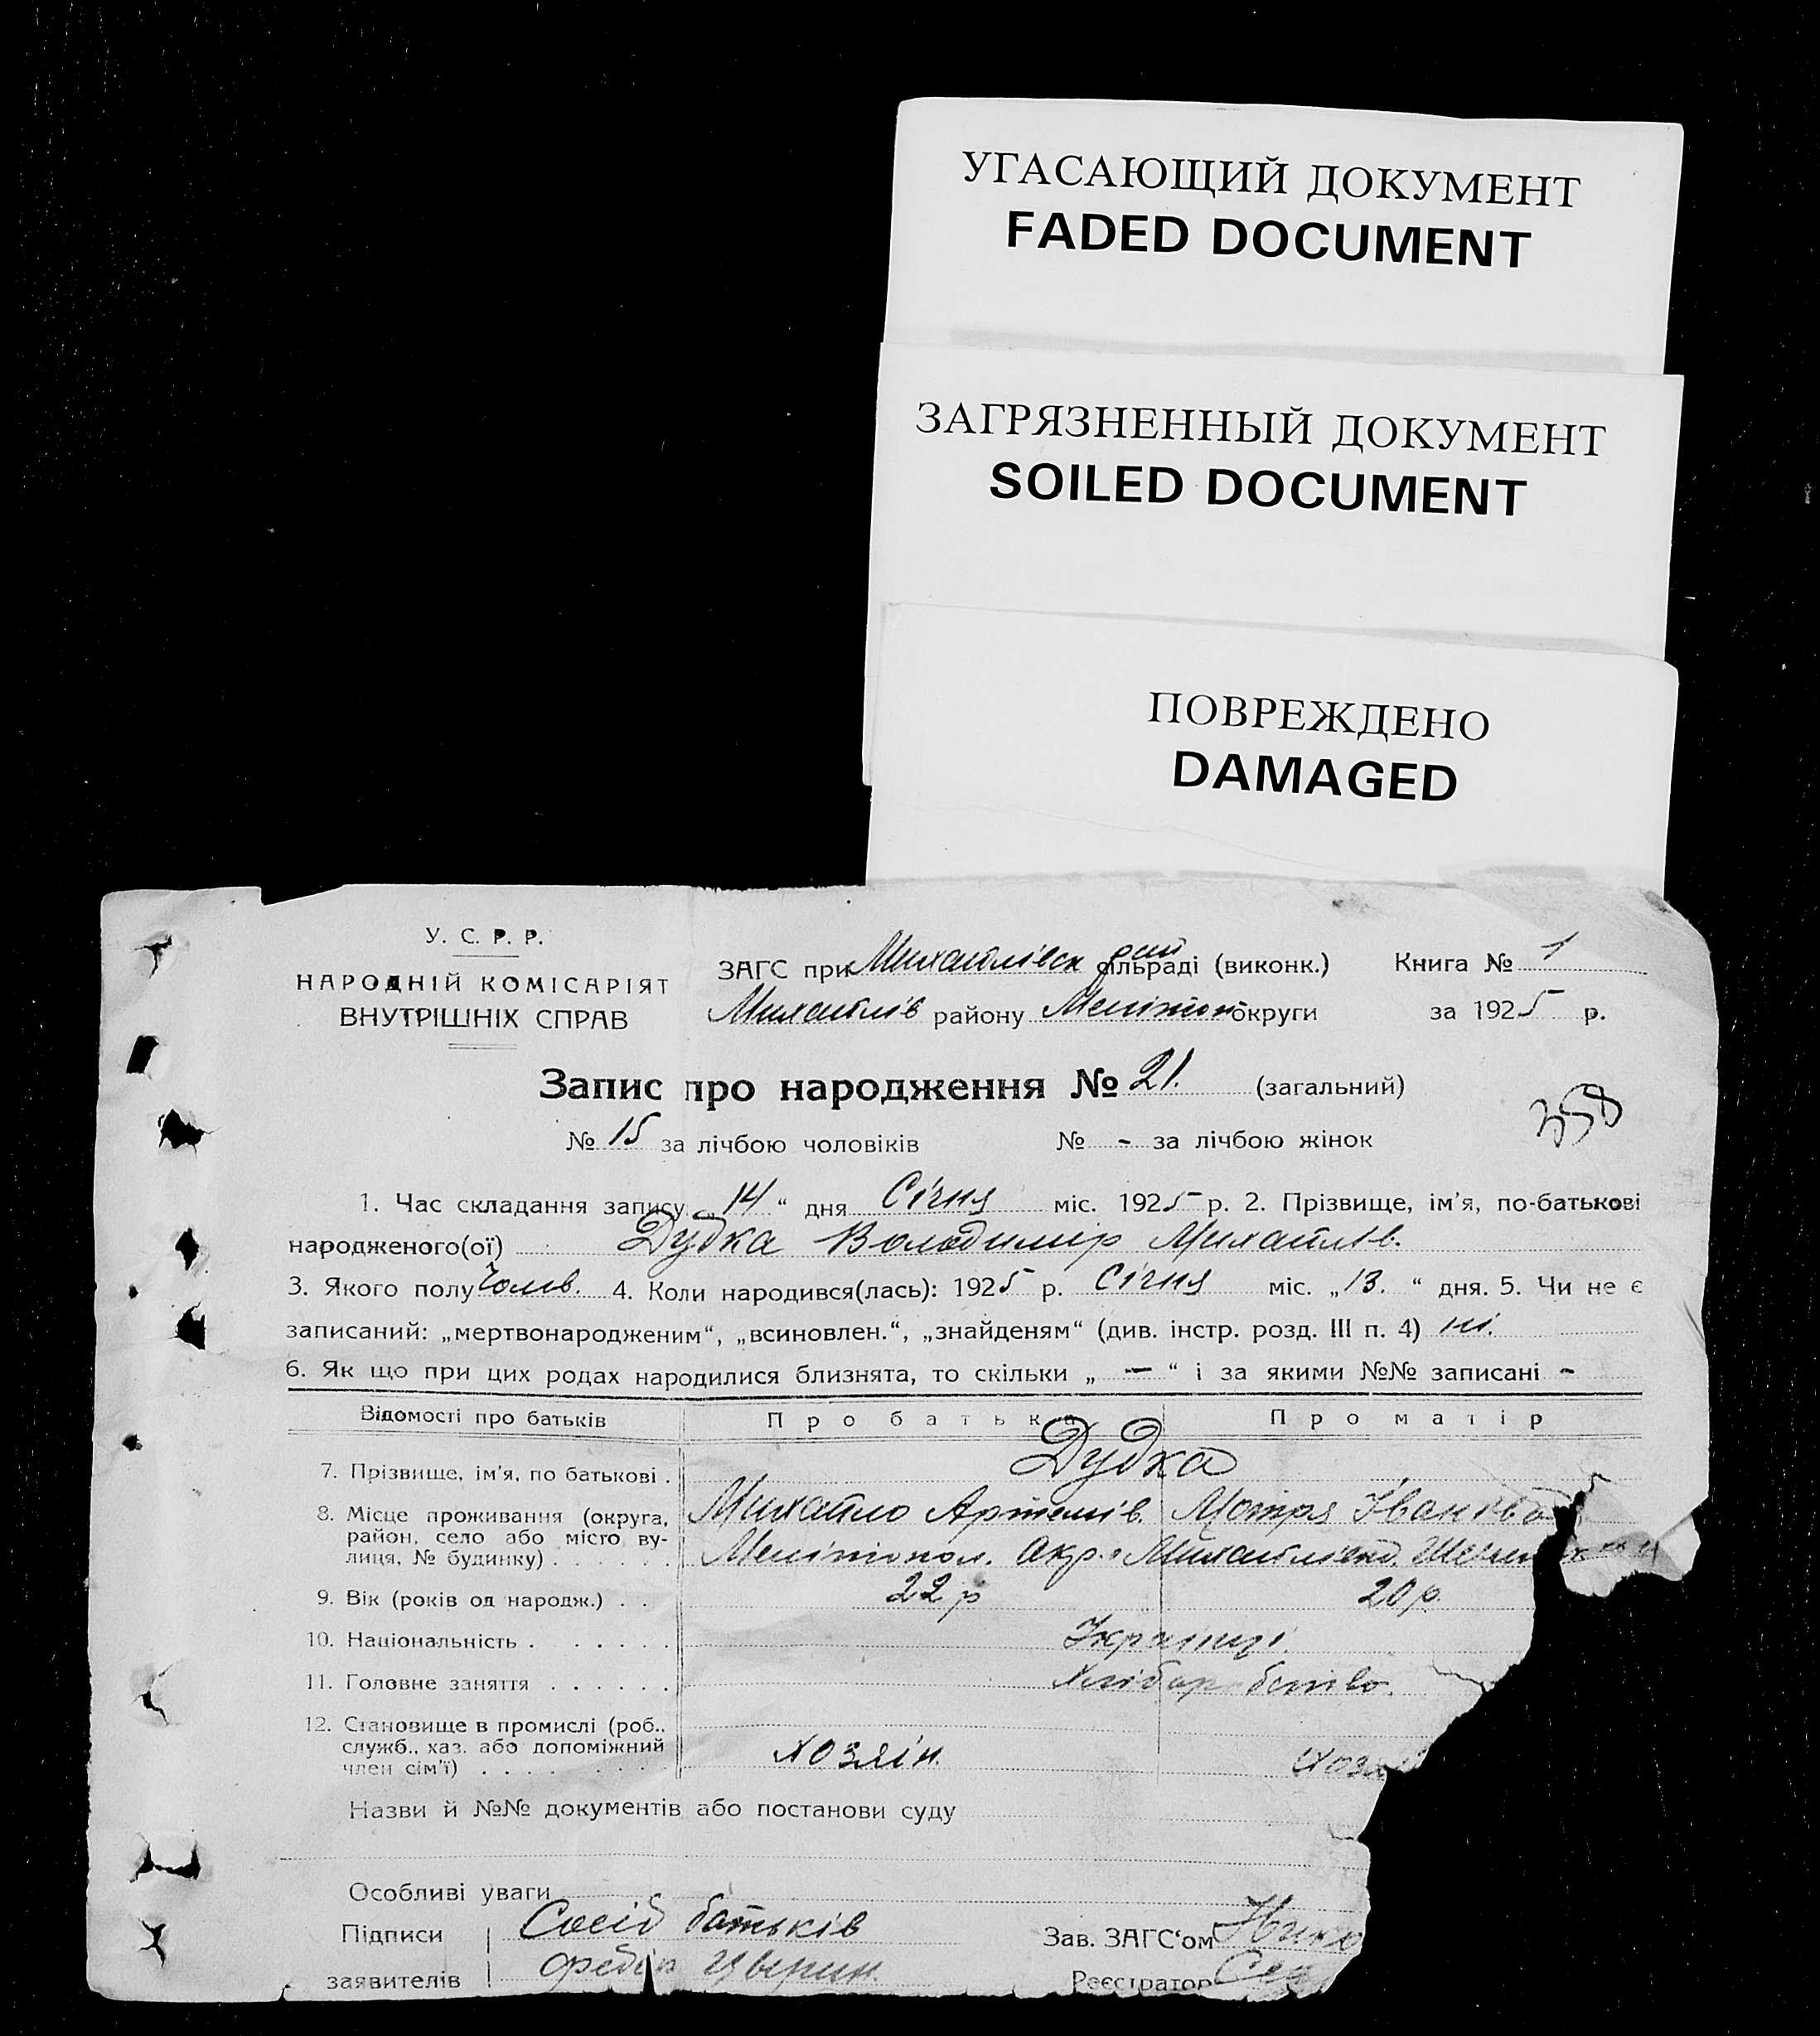 УГАСАЮЩИЙ ДОКУМЕНТ
FADED DOCUMENT
ЗАГРЯЗНЕННЫЙ ДОКУМЕНТ
SOILED DOCUMENT
ПОВРЕЖДЕНО
DAMAGED
У. С. Р. Р.
НАРОДНІЙ КОМІСАРІЯТ
ВНУТРІШНІХ СПРАВ
ЗАГС при Михайлівск рай сільраді (виконк.) Книга № 1
Михайлів району Мелітоп округи за 1925 р.
Запис про народження № 21. (загальний)
358
№ 15 за лічбою чоловіків № - за лічбою жінок
1. Час складання запису „14“ дня Січня міс. 1925 р. 2. Прізвище, ім'я, по-батькові
народженого(ої) Дудка Володимир Михайлів.
3. Якого полу Чолов. 4. Коли народився(лась): 1925 р. Січня міс. „13.“ дня. 5. Чи не є
записаний: „мертвонародженим“, „всиновлен.“, „знайденям“ (див. інстр. розд. III п. 4) ні.
6. Як що при цих родах народилися близнята, то скільки „ — “ і за якими №№ записані -
Відомості про батьків Про батька Про матір
7. Прізвище, ім'я, по батькові . Дудка
Михайло Артемів. Мотря Іванівна
8. Місце проживання (округа,
район, село або місто ву-
лиця, № будинку) . . . . . . Мелітопол. Окр. Михайлівка
9. Вік (років од народж.) . . 22 р 20 р.
10. Національність . . . . . . Українці.
11. Головне заняття . . . . . . Хліборобство.
12. Становище в промислі (роб.,
служб., хаз. або допоміжний
член сім'ї) . . . . . . . Хозяїн. Хозя
Назви й №№ документів або постанови суду
Особливі уваги
Підписи Сосід батьків Зав. ЗАГС'ом
заявителів Реєстратор